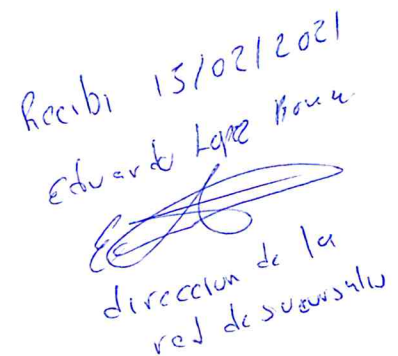 Recibi 15/02/2021
Eduardo Lopez
direccion de la
red de sucursales